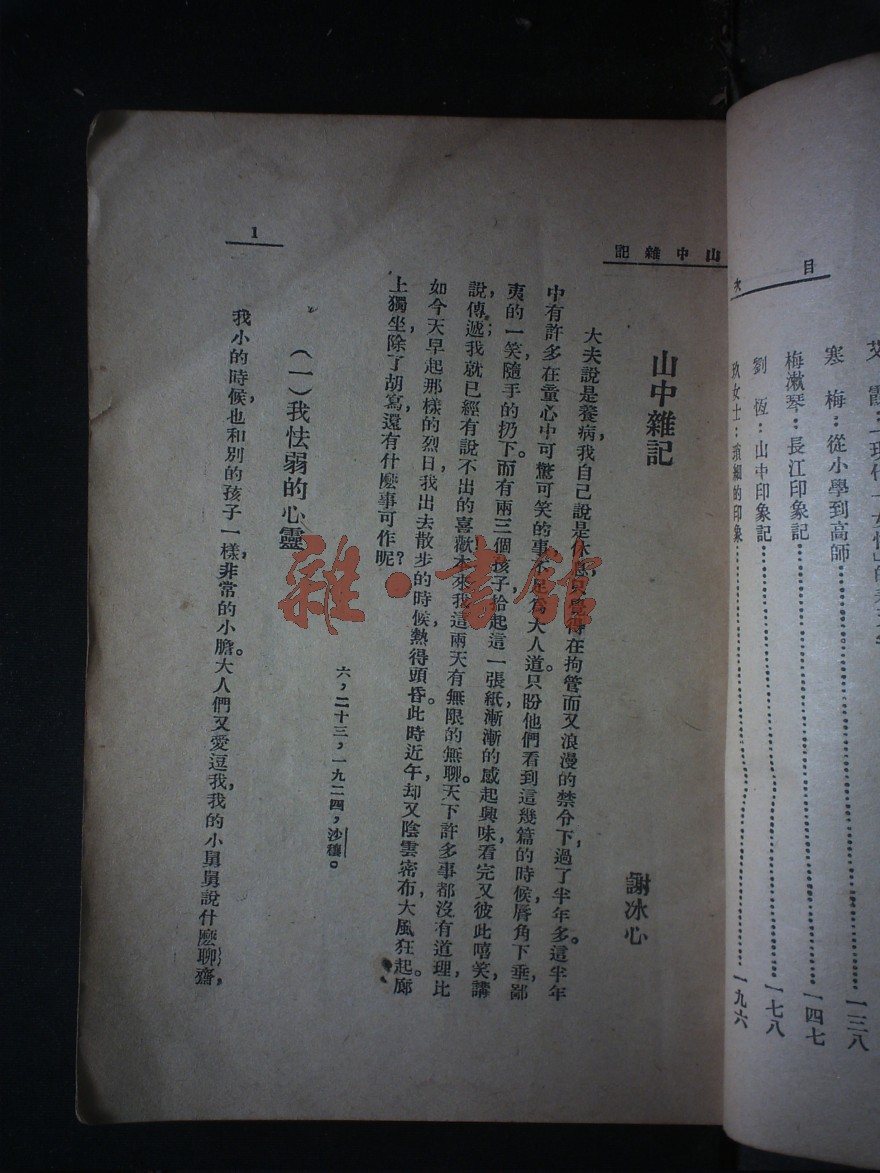 目　次
艾　霞：
寒　梅：從小學到高師……一三八
梅漱琴：長江印象記……一四七
劉　恆：山中印象記……一七八
玖女士：瑣細的印象……一九六
山中雜記
山中雜記
謝冰心
大夫說是養病，我自己說是休息，只覺得在拘管而又浪漫的禁令下，過了半年多。這半年
中有許多在童心中可驚可笑的事，不足為大人道。只盼他們看到這幾篇的時候，唇角下垂，鄙
夷的一笑，隨手的扔下。而有兩三個孩子，拾起這一張紙，漸漸的感起興味，看完又彼此嘻笑，講
說，傳遞；我就已經有說不出的喜歡！本來我這兩天有無限的無聊。天下許多事都沒有道理，比
如今天早起那樣的烈日，我出去散步的時候，熱得頭昏。此時近午，却又陰雲密布，大風狂起。廊
上獨坐，除了胡寫，還有什麽事可作呢？
六，二十三，一九二四，沙穰。
（一）我怯弱的心靈
我小的時候，也和別的孩子一樣，非常的小膽。大人們又愛逗我，我的小舅舅說什麽聊齋，
1
雜·書館